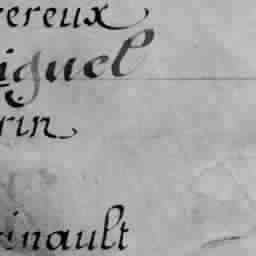 vereux
iguel
rin
inault